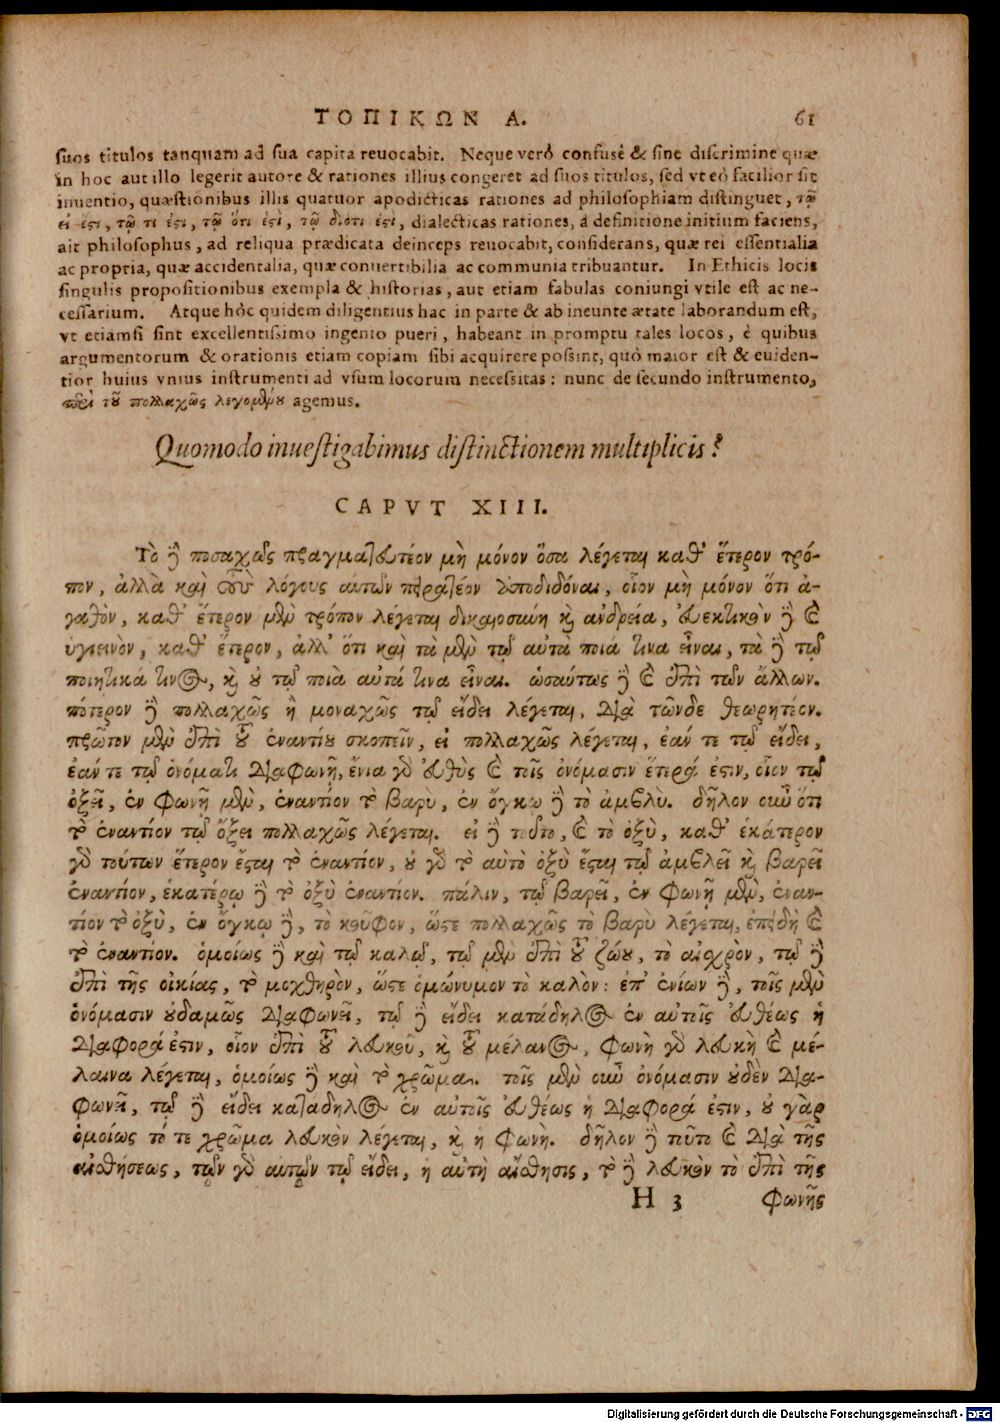 ΤΟΠΙΚΩΝ Α. 61
suos titulos tanquam ad sua capita reuocabit. Neque verò confusè & sine discrimine quæ
in hoc aut illo legerit autore & rationes illius congeret ad suos titulos, sed vt eò facilior sit
inuentio, quæstionibus illis quatuor apodicticas rationes ad philosophiam distinguet, τῷ
εἰ ἔϛι, τῷ τι ἐϛι, τῷ ὅτι ἐϛὶ, τῷ διότι ἐϛὶ, dialecticas rationes, à definitione initium faciens,
ait philosophus, ad reliqua prædicata deinceps reuocabit, considerans, quæ rei essentialia
ac propria, quæ accidentalia, quæ conuertibilia ac communia tribuantur. In Ethicis locis
singulis propositionibus exempla & historias, aut etiam fabulas coniungi vtile est ac ne-
cessarium. Atque hòc quidem diligentius hac in parte & ab ineunte ætate laborandum est,
vt etiamsi sint excellentissimo ingenio pueri, habeant in promptu tales locos, è quibus
argumentorum & orationis etiam copiam sibi acquirere possint, quò maior est & euiden-
tior huius vnius instrumenti ad vsum locorum necessitas: nunc de secundo instrumento,
περὶ τοῦ πολλαχῶς λεγομένου agemus.
Quomodo inuestigabimus distinctionem multiplicis?
CAPVT XIII.
Τὸ δὲ ποσαχῶς πραγματευτέον μὴ μόνον ὅσα λέγεται καθ᾽ ἕτερον τρό-
πον, ἀλλὰ καὶ τοὺς λόγους αὐτῶν πειρατέον ἀποδιδόναι, οἷον μὴ μόνον ὅτι ἀ-
γαθὸν, καθ᾽ ἕτερον μὲν τρόπον λέγεται δικαιοσύνη καὶ ἀνδρεία, εὐεκτικὸν δὲ καὶ
ὑγιεινὸν, καθ᾽ ἕτερον, ἀλλ᾽ ὅτι καὶ τὰ μὲν τῷ αὐτὰ ποιά τινα εἶναι, τὰ δὲ τῷ
ποιητικά τινος, καὶ οὐ τῷ ποιὰ αὐτά τινα εἶναι. ὡσαύτως δὲ καὶ ἐπὶ τῶν ἄλλων.
πότερον δὲ πολλαχῶς ἢ μοναχῶς τῷ εἴδει λέγεται, διὰ τῶνδε θεωρητέον.
πρῶτον μὲν ἐπὶ τοῦ ἐναντίου σκοπεῖν, εἰ πολλαχῶς λέγεται, ἐάν τε τῷ εἴδει,
ἐάν τε τῷ ὀνόματι διαφωνῇ, ἔνια γὰρ εὐθὺς καὶ τοῖς ὀνόμασιν ἕτερά ἐϛιν, οἷον τῷ
ὀξεῖ, ἐν φωνῇ μὲν, ἐναντίον τὸ βαρὺ, ἐν ὄγκῳ δὲ τὸ ἀμβλὺ. δῆλον οὖν ὅτι
τὸ ἐναντίον τῷ ὄξει πολλαχῶς λέγεται. εἰ δὲ τοῦτο, καὶ τὸ ὀξὺ, καθ᾽ ἑκάτερον
γὰρ τούτων ἕτερον ἔϛαι τὸ ἐναντίον, οὐ γὰρ τὸ αὐτὸ ὀξὺ ἔϛαι τῷ ἀμβλεῖ καὶ βαρεῖ
ἐναντίον, ἑκατέρῳ δὲ τὸ ὀξὺ ἐναντίον. πάλιν, τῷ βαρεῖ, ἐν φωνῇ μὲν, ἐναν-
τίον τὸ ὀξὺ, ἐν ὄγκῳ δὲ, τὸ κοῦφον, ὥϛε πολλαχῶς τὸ βαρὺ λέγεται, ἐπειδὴ καὶ
τὸ ἐναντίον. ὁμοίως δὲ καὶ τῷ καλῷ, τῷ μὲν ἐπὶ τοῦ ζώου, τὸ αἰσχρὸν, τῷ δὲ
ἐπὶ τῆς οἰκίας, τὸ μοχθηρὸν, ὥϛε ὁμώνυμον τὸ καλὸν: ἐπ᾽ ἐνίων δὲ, τοῖς μὲν
ὀνόμασιν οὐδαμῶς διαφωνεῖ, τῷ δὲ εἴδει κατάδηλος ἐν αὐτοῖς εὐθέως ἡ
διαφορά ἐϛιν, οἷον ἐπὶ τοῦ λευκοῦ, καὶ τοῦ μέλανος, φωνὴ γὰρ λευκὴ καὶ μέ-
λαινα λέγεται, ὁμοίως δὲ καὶ τὸ χρῶμα. τοῖς μὲν οὖν ὀνόμασιν οὐδὲν δια-
φωνεῖ, τῷ δὲ εἴδει κατάδηλος ἐν αὐτοῖς εὐθέως ἡ διαφορά ἐϛιν, οὐ γὰρ
ὁμοίως τό τε χρῶμα λευκὸν λέγεται, καὶ ἡ φωνὴ. δῆλον δὲ τοῦτο καὶ διὰ τῆς
αἰσθήσεως, τῶν γὰρ αὐτῶν τῷ εἴδει, ἡ αὐτὴ αἴσθησις, τὸ δὲ λευκὸν τὸ ἐπὶ τῆς
H 3 φωνῆς
Digitalisierung gefördert durch die Deutsche Forschungsgemeinschaft - DFG